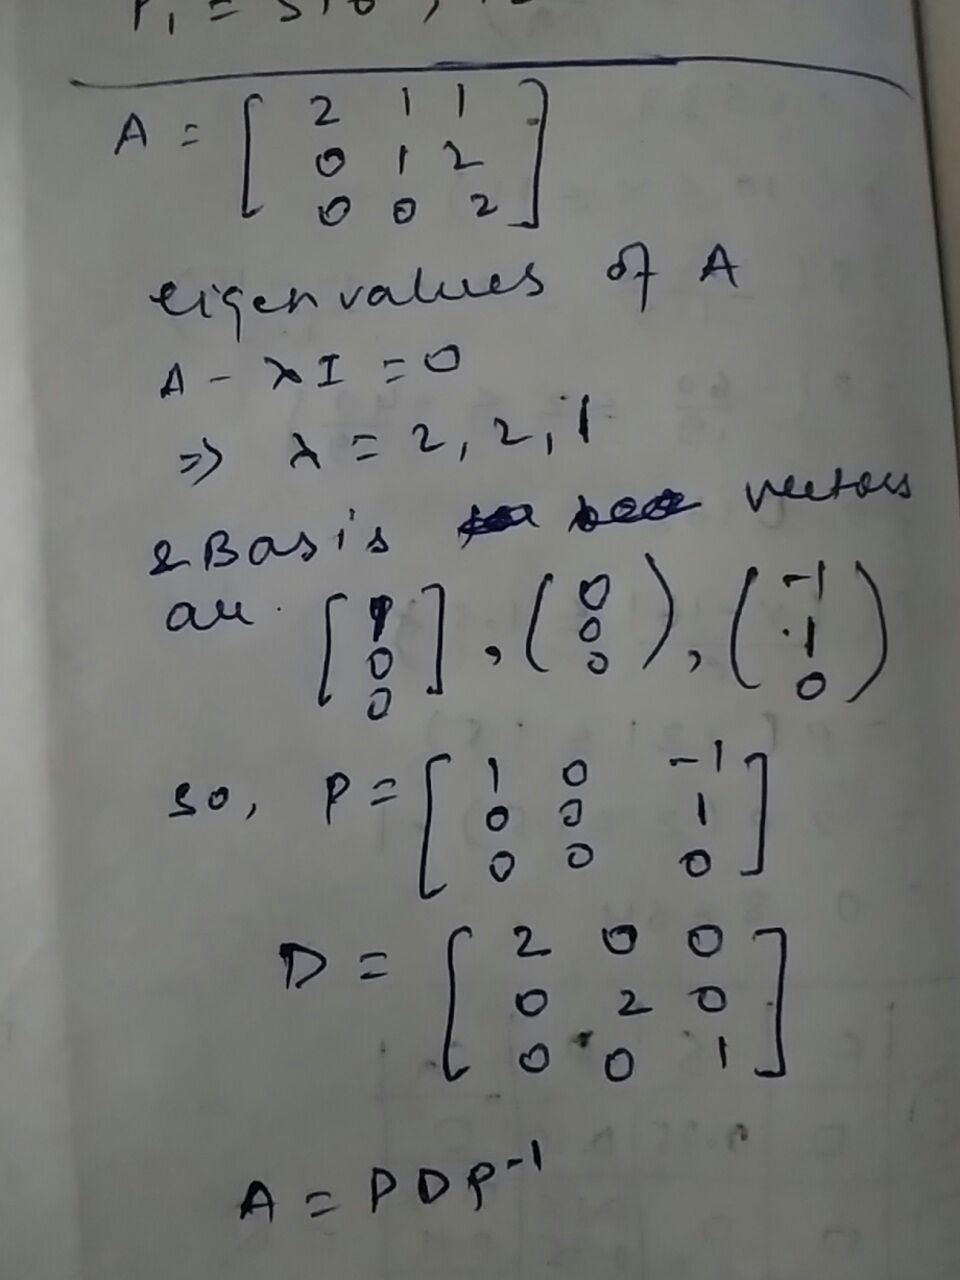 A = [ 2 1 1
0 1 2
0 0 2 ]
eigenvalues of A
A - λI = 0
⇒ λ = 2, 2, 1
& Basis vectors
are [ 1 0 0 ], ( 0 0 0 ), ( -1 1 0 )
so, P = [ 1 0 -1
0 0 1
0 0 0 ]
D = [ 2 0 0
0 2 0
0 0 1 ]
A = PDP⁻¹